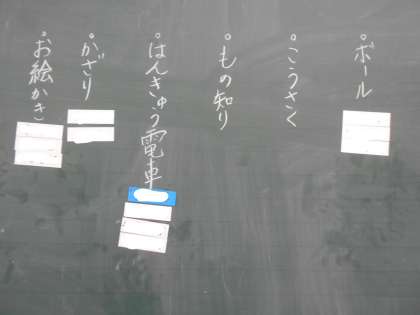 °ボール
°こうさく
°もの知り
°はんきゅう電車
°がざり
°お絵かき